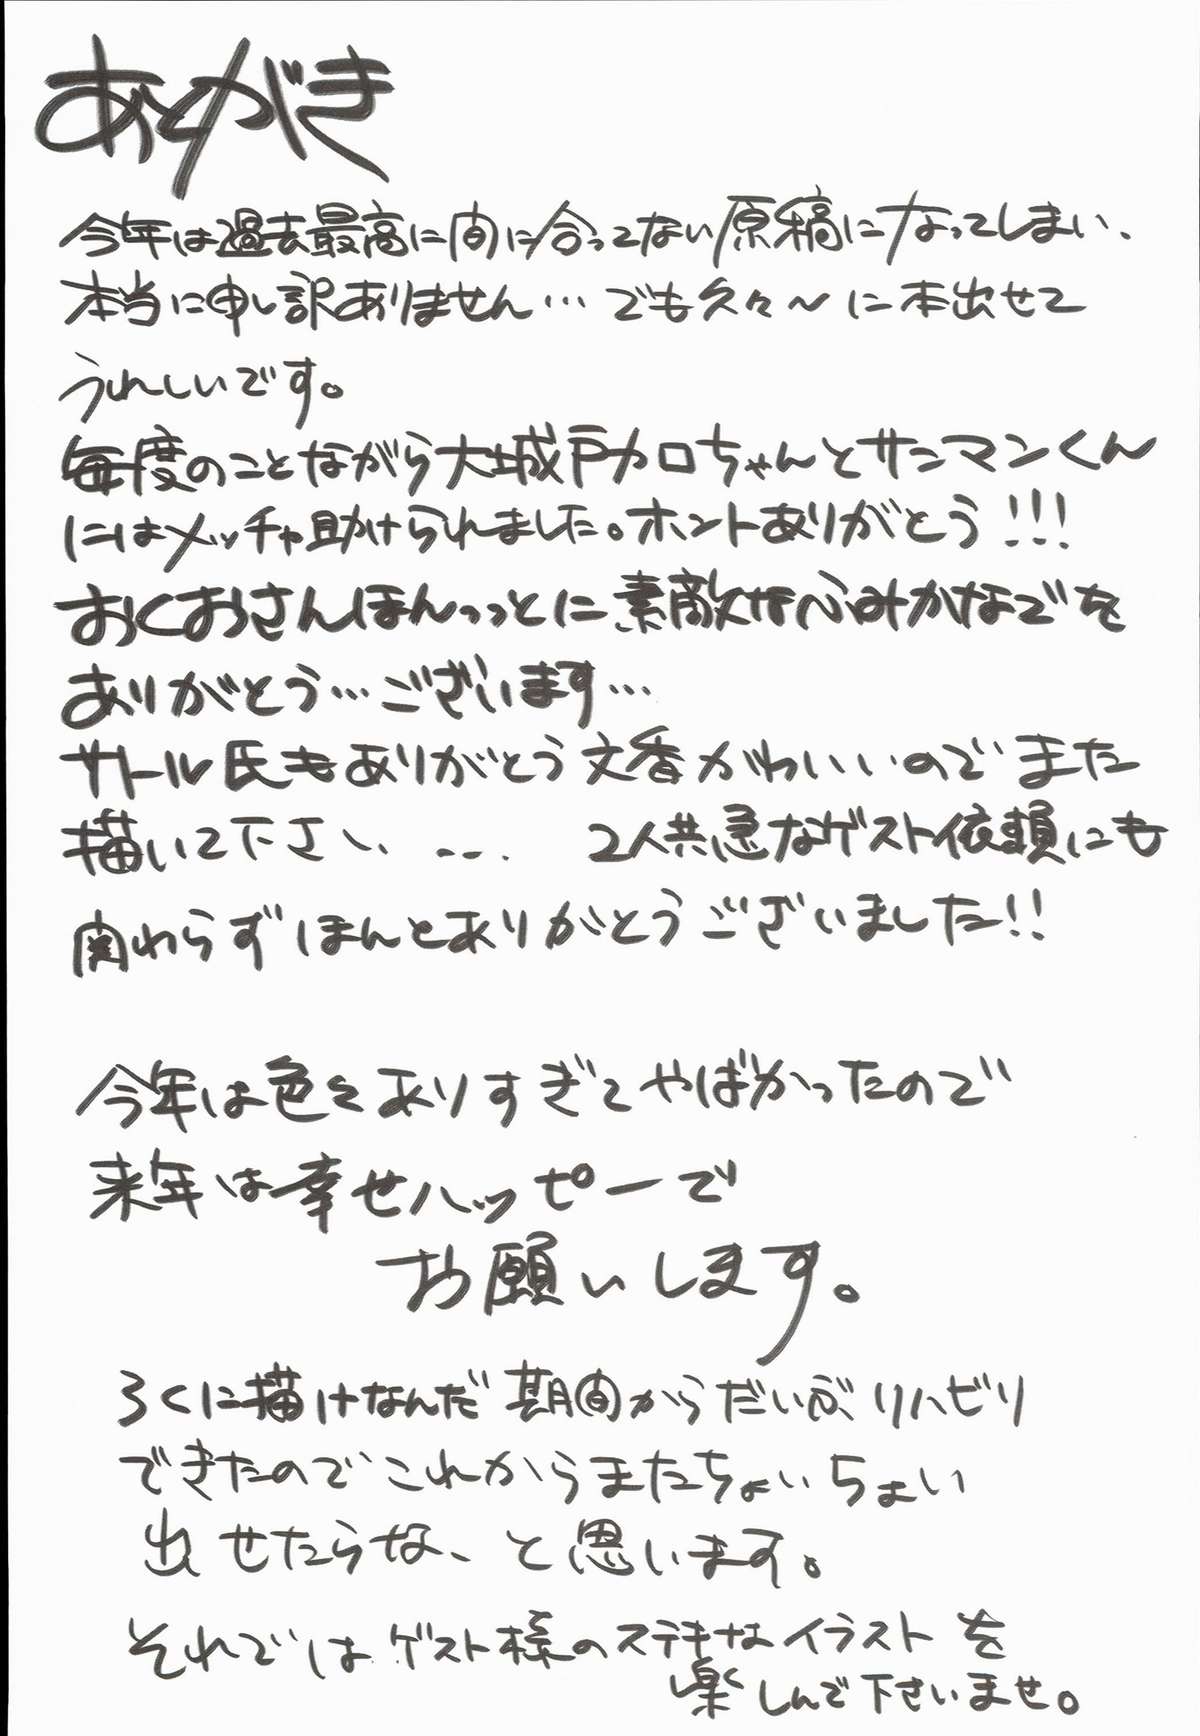 あとがき
今年は過去最高に間に合ってない原稿になってしまい、
本当に申し訳ありません…でも久々〜に本出せて
うれしいです。
毎度のことながら大城戸カロちゃんとサニマンくん
にはメッチャ助けられました。ホントありがとう!!!
おくおさんほんっっとに素敵なふみかなでを
ありがとう…ございます…
サトール氏もありがとう文香かわいいのでまた
描いて下さい、… 2人共急なゲスト依頼にも
関わらずほんとありがとうございました!!
今年は色々ありすぎてやばかったので
来年は幸せハッピーで
お願いします。
ろくに描けなんだ期間からだいぶリハビリ
できたのでこれからまたちょいちょい
出せたらな、と思います。
それではゲスト様のステキなイラストを
楽しんで下さいませ。